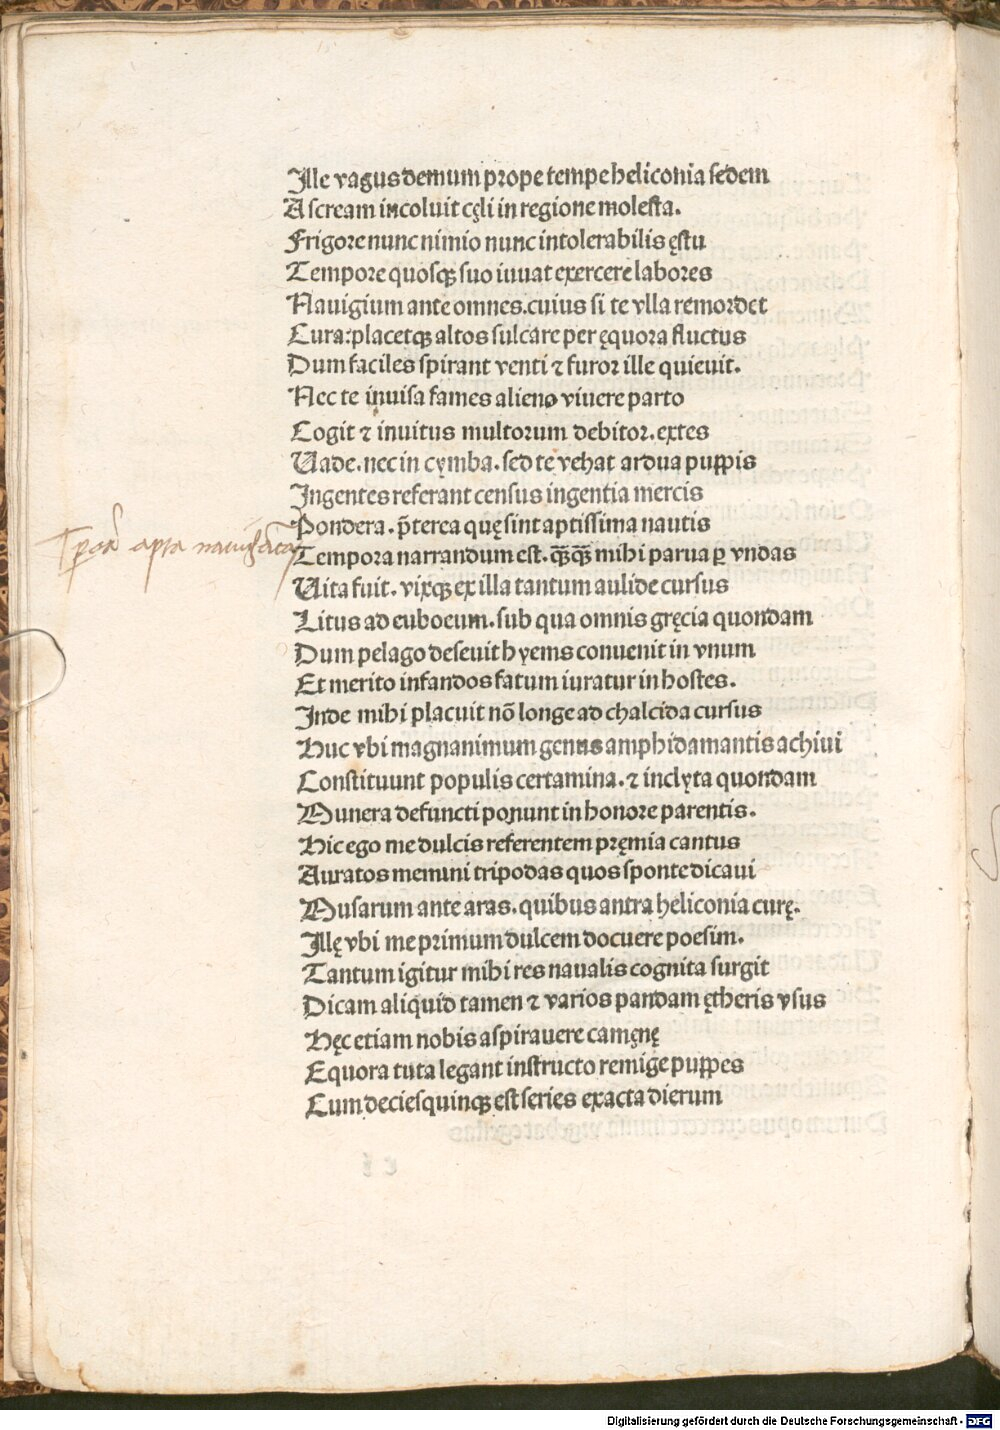 Ille vagus demum prope tempe heliconia sedem
Ascream incoluit cęli in regione molesta.
Frigore nunc nimio nunc intolerabilis ęstu
Tempore quosqꝫ suo iuuat exercere labores
Nauigium ante omnes.cuius si te vlla remordet
Cura:placetqꝫ altos sulcare per ęquora fluctus
Dum faciles spirant venti ⁊ furor ille quieuit.
Nec te inuisa fames alieno viuere parto
Cogit ⁊ inuitus multorum debitor.extes
Uade.nec in cymba.sed te vehat ardua puppis
Ingentes referant census ingentia mercis
Pondera.p̃terea quę sint aptissima nautis
Tempora narrandum est.q̃q̃ mihi parua ꝑ vndas
Uita fuit.vixqꝫ ex illa tantum aulide cursus
Litus ad euboeum.sub qua omnis gręcia quondam
Dum pelago deseuit hyems conuenit in vnum
Et merito infandos fatum iuratur in hostes.
Inde mihi placuit nõ longe ad chalcida cursus
Huc vbi magnanimum genus amphidamantis achiui
Constituunt populis certamina.⁊ inclyta quondam
Munera defuncti ponunt in honore parentis.
Hic ego me dulcis referentem pręmia cantus
Auratos memini tripodas quos sponte dicaui
Musarum ante aras.quibus antra heliconia curę.
Illę vbi me primum dulcem docuere poesim.
Tantum igitur mihi res naualis cognita surgit
Dicam aliquid tamen ⁊ varios pandam ętheris vsus
Hęc etiam nobis aspirauere camęnę
Equora tuta legant instructo remige puppes
Cum deciesquinqꝫ est series exacta dierum
apta
Digitalisierung gefördert durch die Deutsche Forschungsgemeinschaft - DFG